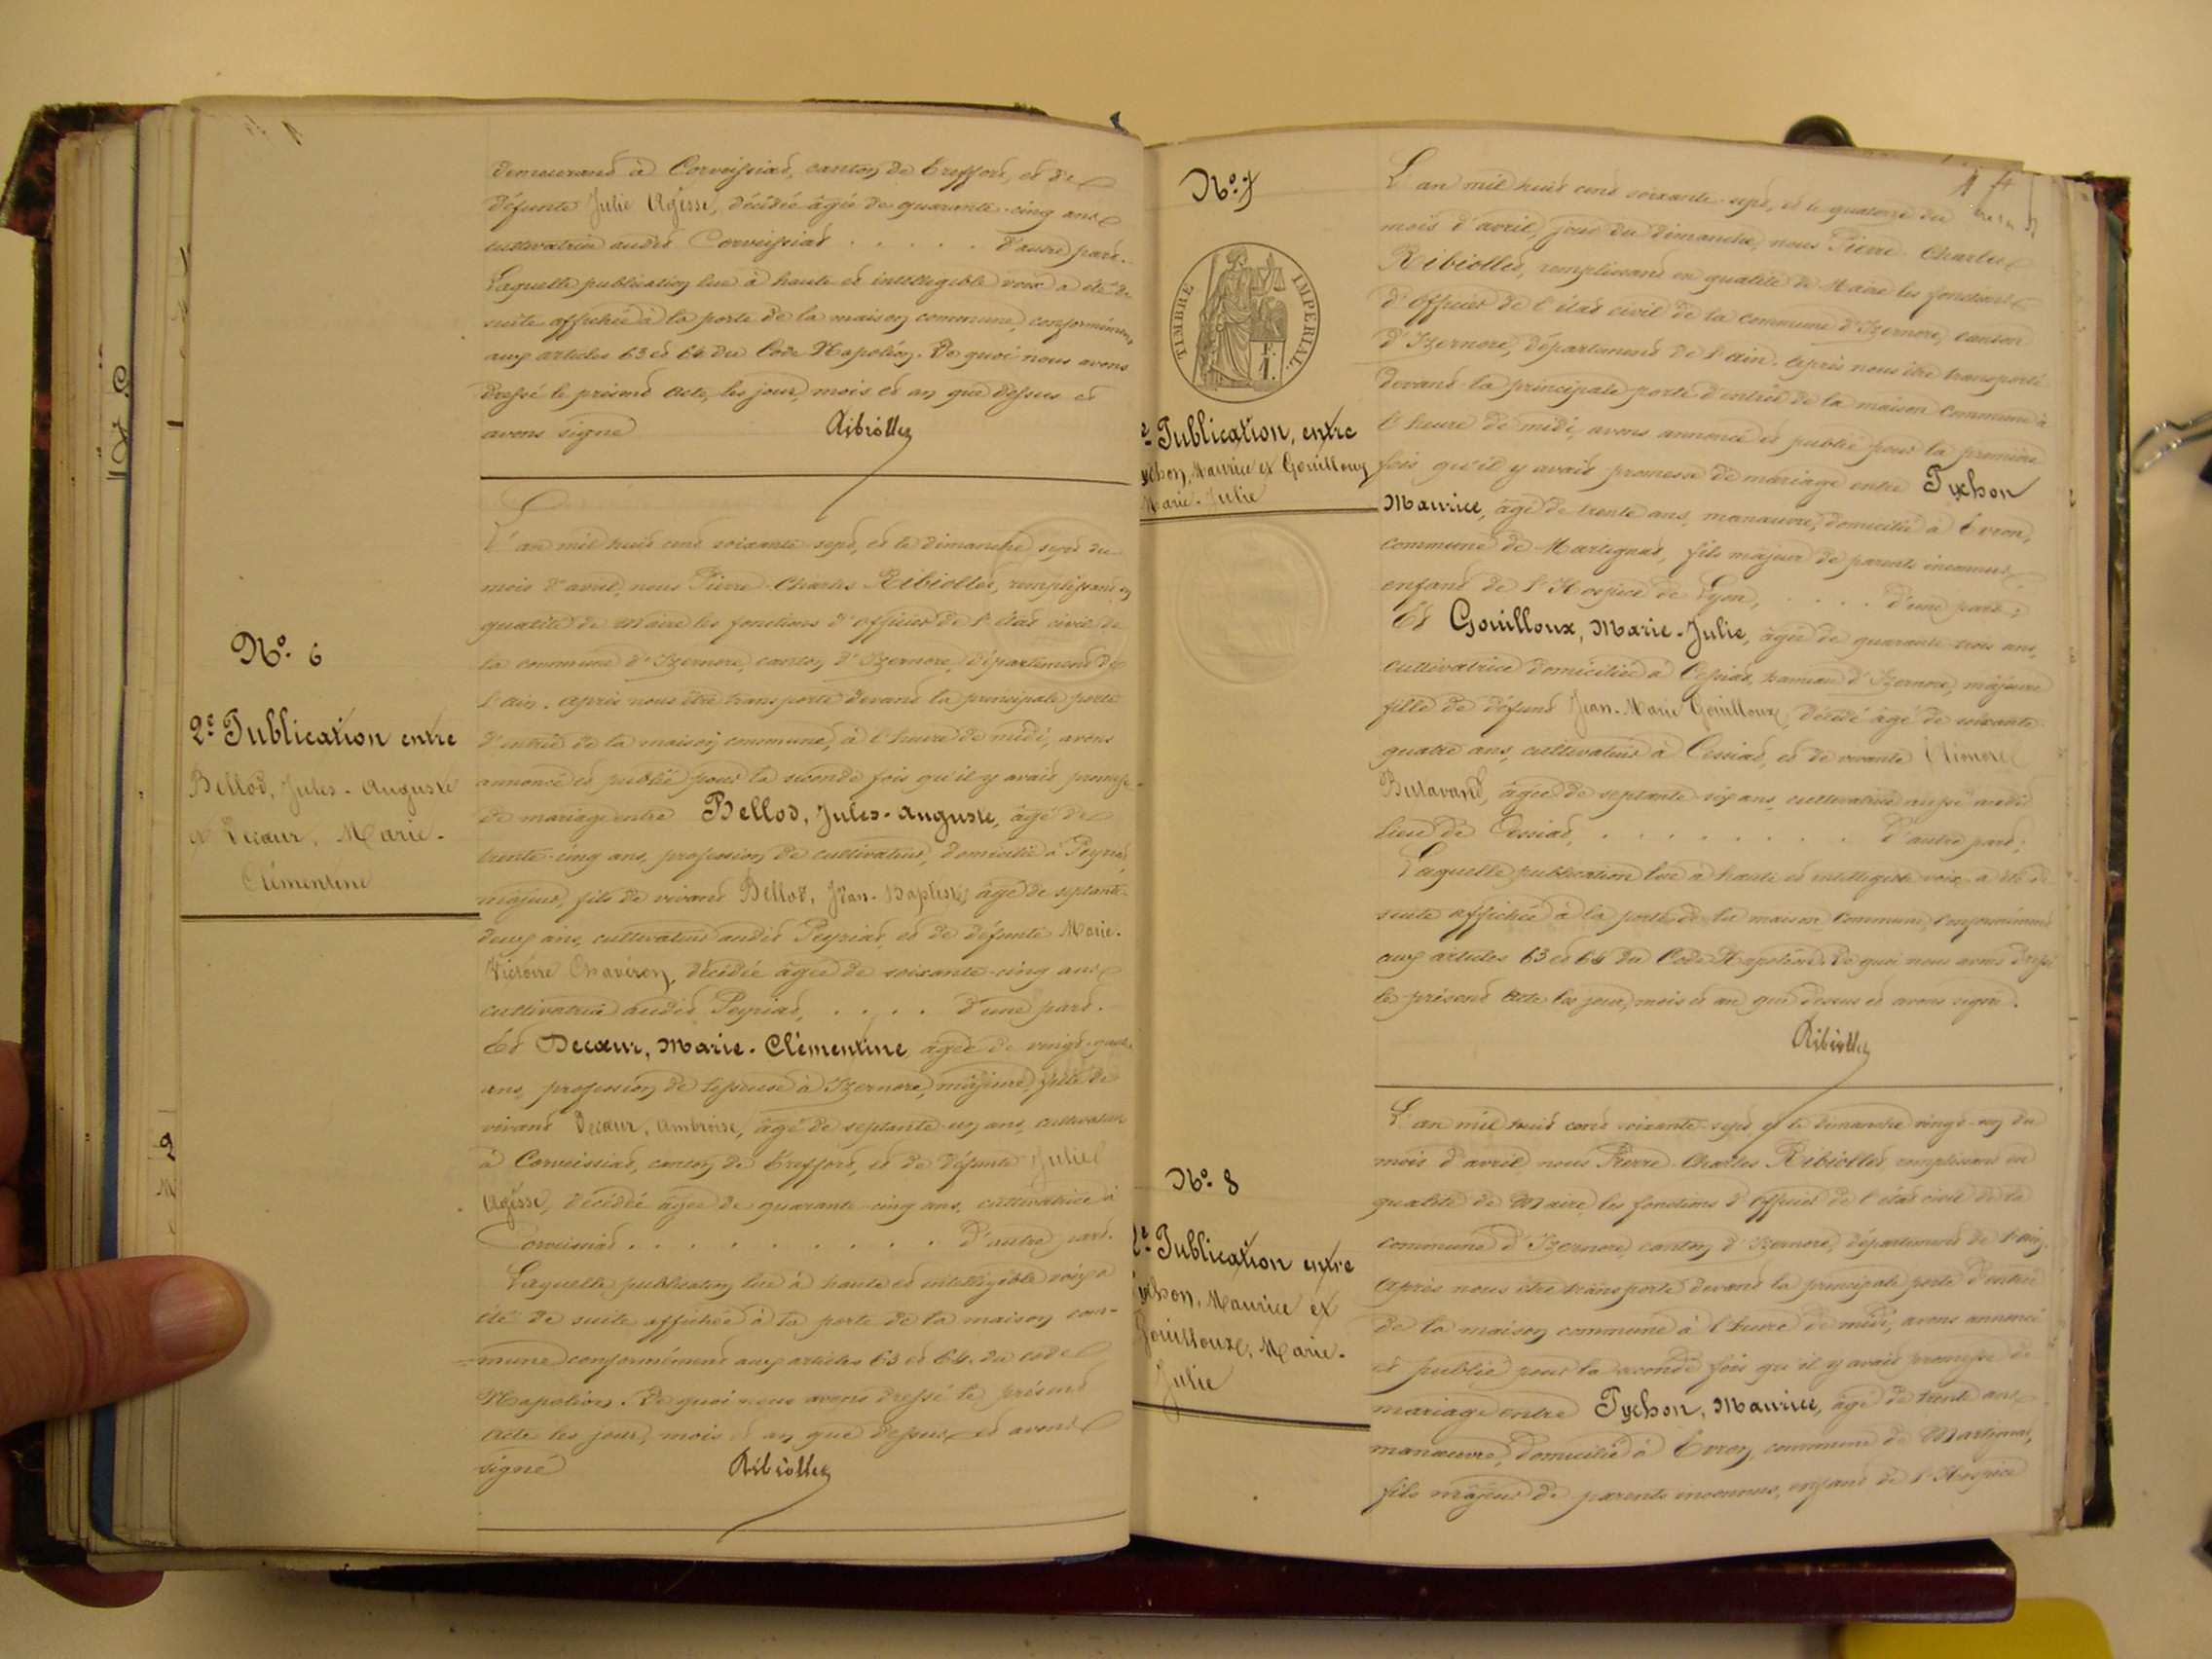 demeurant à Corveissiat, canton de Treffort, et de
défunte Julie Agisse, décédée âgée de quarante-cinq ans
cultivatrice audit Corveissiat . . . . . d'autre part.
Laquelle publication lue à haute et intelligible voix a été de
suite affichée à la porte de la maison commune, conformément
aux articles 63 et 64 du Code Napoléon. De quoi nous avons
dressé le présent acte, les jour, mois et an que dessus et
avons signé Ribiollet
N° 6
2e Publication entre
Bellod, Jules-Auguste
et Decœur, Marie-
Clémentine
L'an mil huit cent soixante-sept, et le dimanche sept du
mois d'avril, nous Pierre-Charles Ribiollet, remplissant en
qualité de Maire les fonctions d'officier de l'état civil de
la commune d'Izernore, canton d'Izernore, département de
l'Ain. Après nous être transporté devant la principale porte
d'entrée de la maison commune, à l'heure de midi, avons
annoncé et publié pour la seconde fois qu'il y avait promesse
de mariage entre Bellod, Jules-Auguste, âgé de
trente-cinq ans, profession de cultivateur, domicilié à Peyriat,
majeur, fils de vivant Bellod, Jean-Baptiste, âgé de septante-
deux ans, cultivateur audit Peyriat, et de défunte Marie-
Victoire Chavéron, décédée âgée de soixante-cinq ans
cultivatrice audit Peyriat, . . . . d'une part.
Et Decœur, Marie-Clémentine, âgée de vingt-
ans, profession de à Izernore, majeure, fille de
vivant Decœur, Ambroise, âgé de septante-un ans, cultivateur
à Corveissiat, canton de Treffort, et de défunte Julie
Agisse, décédée âgée de quarante-cinq ans, cultivatrice à
Corveissiat . . . . . . . . . d'autre part.
Laquelle publication lue à haute et intelligible voix a
été de suite affichée à la porte de la maison com-
-mune conformément aux articles 63 et 64 du code
Napoléon. De quoi nous avons dressé le présent
acte les jour, mois et an que dessus et avons
signé Ribiollet
N° 7
TIMBRE IMPERIAL
e Publication, entre
ychon, Maurice et Gouilloux
Marie-Julie
L'an mil huit cent soixante-sept, et le quatorze du
mois d'avril, jour du dimanche, nous Pierre-Charles
Ribiollet, remplissant en qualité de Maire les fonctions
d'officier de l'état civil de la commune d'Izernore, canton
d'Izernore, département de l'Ain. Après nous être transporté
devant la principale porte d'entrée de la maison commune à
l'heure de midi, avons annoncé et publié pour la première
fois qu'il y avait promesse de mariage entre Tychon
Maurice, âgé de trente ans, manœuvre, domicilié à Evron,
commune de Martignat, fils majeur de parents inconnus
enfant de l'Hospice de Lyon, . . . . d'une part;
Et Gouilloux, Marie-Julie, âgée de quarante-trois ans,
cultivatrice domiciliée à Cessiat, hameau d'Izernore, majeure
fille de défunt Jean-Marie Gouilloux, décédé âgé de soixante-
quatre ans, cultivateur à Cessiat, et de vivante
Butavand, âgée de septante-six ans, cultivatrice aussi audit
lieu de Cessiat, . . . . . . . . d'autre part;
Laquelle publication lue à haute et intelligible voix a été de
suite affichée à la porte de la maison commune, conformément
aux articles 63 et 64 du Code Napoléon. De quoi nous avons dressé
le présent acte les jour, mois et an que dessus et avons signé.
Ribiollet
N° 8
2e Publication entre
Tychon, Maurice et
Gouilloux, Marie-
Julie
L'an mil huit cent soixante-sept et le dimanche vingt-un du
mois d'avril nous Pierre-Charles Ribiollet remplissant en
qualité de Maire les fonctions d'officier de l'état civil de la
commune d'Izernore, canton d'Izernore, département de l'Ain,
Après nous être transporté devant la principale porte d'entrée
de la maison commune à l'heure de midi, avons annoncé
et publié pour la seconde fois qu'il y avait promesse de
mariage entre Tychon, Maurice, âgé de trente ans,
manœuvre, domicilié à Evron, commune de Martignat,
fils majeur de parents inconnus, enfant de l'Hospice